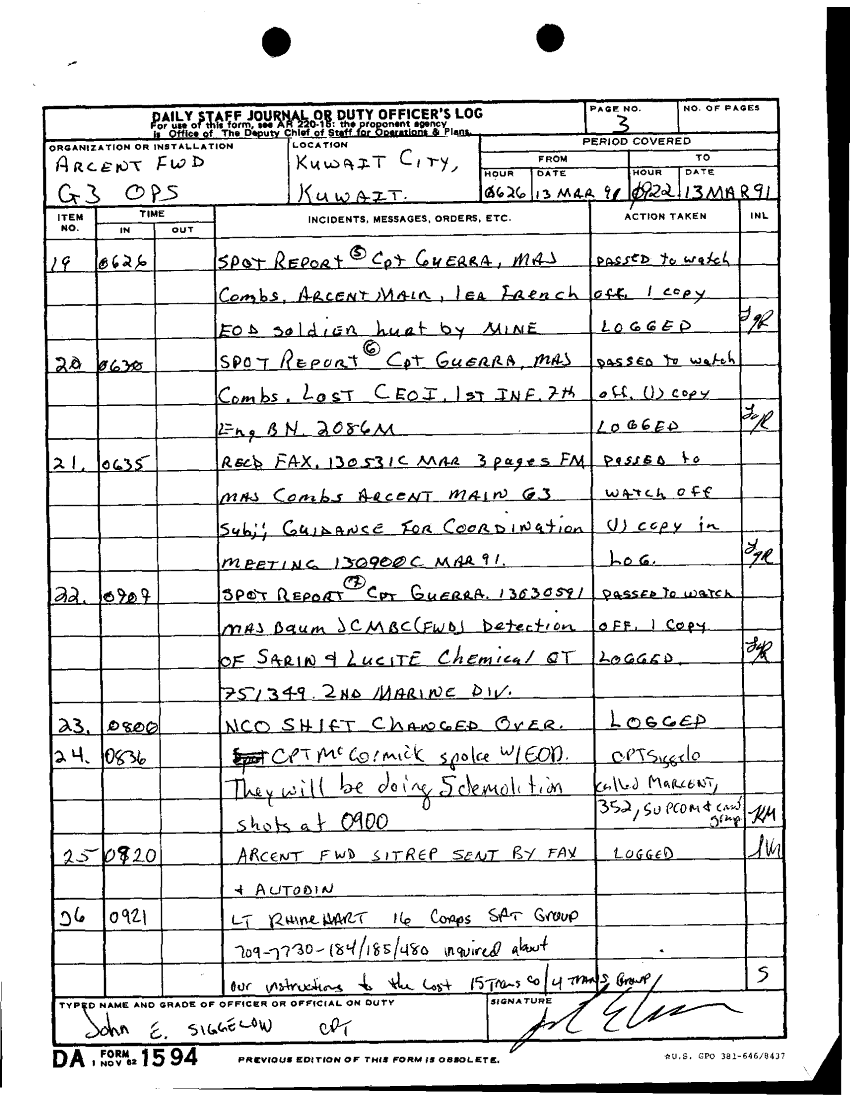 DAILY STAFF JOURNAL OR DUTY OFFICER'S LOG
For use of this form, see AR 220-15: the proponent agency
is Office of The Deputy Chief of Staff for Operations & Plans.
PAGE NO.
3
NO. OF PAGES
ORGANIZATION OR INSTALLATION
ARCENT FWD
G3 OPS
LOCATION
KUWAIT CITY,
KUWAIT.
PERIOD COVERED
FROM TO
HOUR DATE HOUR DATE
0626 13 MAR 91 0922 13 MAR 91
ITEM NO. TIME INCIDENTS, MESSAGES, ORDERS, ETC. ACTION TAKEN INL
IN OUT
19 0626 SPOT REPORT (5) CPT GUERRA, MAJ passed to watch
Combs, ARCENT MAIN, 1ea French off. 1 copy
EOD soldier hurt by MINE LOGGED
20 0630 SPOT REPORT (6) CPT GUERRA, MAJ passed to watch
Combs. LOST CEOI, 1ST INF. 7th off. (1) copy
Eng BN. 2086M LOGGED
21. 0635 RECD FAX. 130531C MAR 3 pages FM passed to
MAJ Combs ARCENT MAIN G3 watch off
Subj; GUIDANCE FOR COORDINATION (1) copy in
MEETING 130900C MAR 91. LOG.
22. 0707 SPOT REPORT (7) CPT GUERRA. passed to watch
MAJ Baum JCMBC(FWD) Detection OFF. 1 copy
OF SARIN & LUCITE Chemical QT LOGGED.
751349. 2ND MARINE DIV.
23. 0800 NCO SHIFT CHANGED OVER. LOGGED
24. 0836 CPT McCormick spoke W/EOD. CPT Siggelo
They will be doing 5 demolition called MARCENT,
shots at 0900 352, SUPCOM & KM
25 0820 ARCENT FWD SITREP SENT BY FAX LOGGED
& AUTODIN
26 0921 LT RHINEHART 16 Corps SPT Group
709-7730-184/185/480 inquired about
our instructions to the Lost 15 Trans Co/4 TRANS Group/ S
TYPED NAME AND GRADE OF OFFICER OR OFFICIAL ON DUTY
John E. SIGGELOW CPT
SIGNATURE
DA FORM 1 NOV 62 1594
PREVIOUS EDITION OF THIS FORM IS OBSOLETE.
☆U.S. GPO 381-646/8437